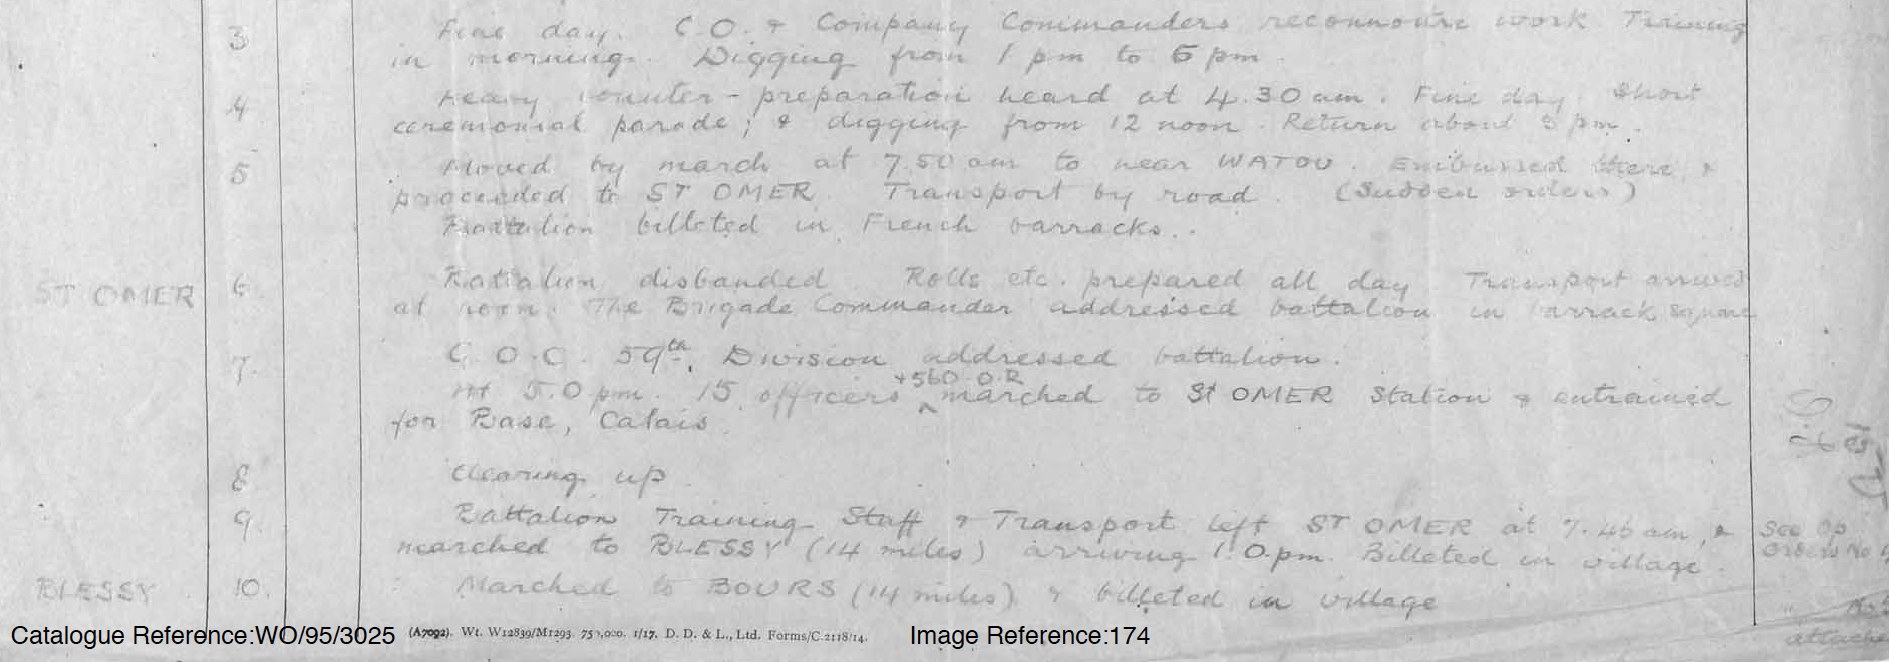 3 Fine day. C.O. & Company Commanders reconnoitre work Training
in morning. Digging from 1 pm to 5 pm.
4 Heavy counter-preparation heard at 4.30 am. Fine day. Short
ceremonial parade; & digging from 12 noon. Return about 5 pm.
5 Moved by march at 7.50 am to near WATOU. Embussed there &
proceeded to ST OMER. Transport by road. (Sudden orders)
Battalion billeted in French barracks.
ST OMER 6 Battalion disbanded Rolls etc. prepared all day Transport arrived
at noon. The Brigade Commander addressed battalion in barrack square
7. G.O.C. 59th. Division addressed battalion.
At 5.0 pm. 15 officers + 560 O.R marched to St OMER Station & entrained
for Base, Calais.
8 Clearing up
9. Battalion Training Staff & Transport left ST OMER at 7.45 am, & See Op
marched to BLESSY (14 miles) arriving 1.0.pm. Billeted in village. Orders No
BLESSY 10. Marched to BOURS (14 miles) & billeted in village
attached
Catalogue Reference:WO/95/3025 (A7092). Wt. W12839/M1293. 750,000. 1/17. D. D. & L., Ltd. Forms/C.2118/14. Image Reference:174